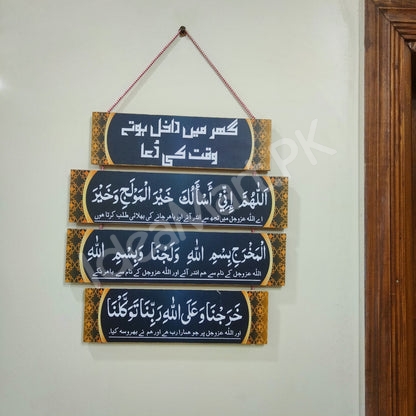 گھر میں داخل ہوتے
وقت کی دُعا
اَللّٰهُمَّ اِنِّیْ أَسْأَلُكَ خَيْرَ الْمَوْلَجِ وَخَيْرَ
اے اللّٰہ عزوجل میں تجھ سے اندر آنے اور باہر جانے کی بھلائی طلب کرتا ہوں
الْمَخْرَجِ بِسْمِ اللّٰهِ وَلَجْنَا وَبِسْمِ اللّٰهِ
اللّٰہ عزوجل کے نام سے ہم اندر آئے اور اللّٰہ عزوجل کے نام سے باہر نکلے
خَرَجْنَا وَعَلَى اللّٰهِ رَبِّنَا تَوَكَّلْنَا
اور اللّٰہ عزوجل پر جو ہمارا رب ہے اور ہم نے بھروسہ کیا۔
IdealMart PK